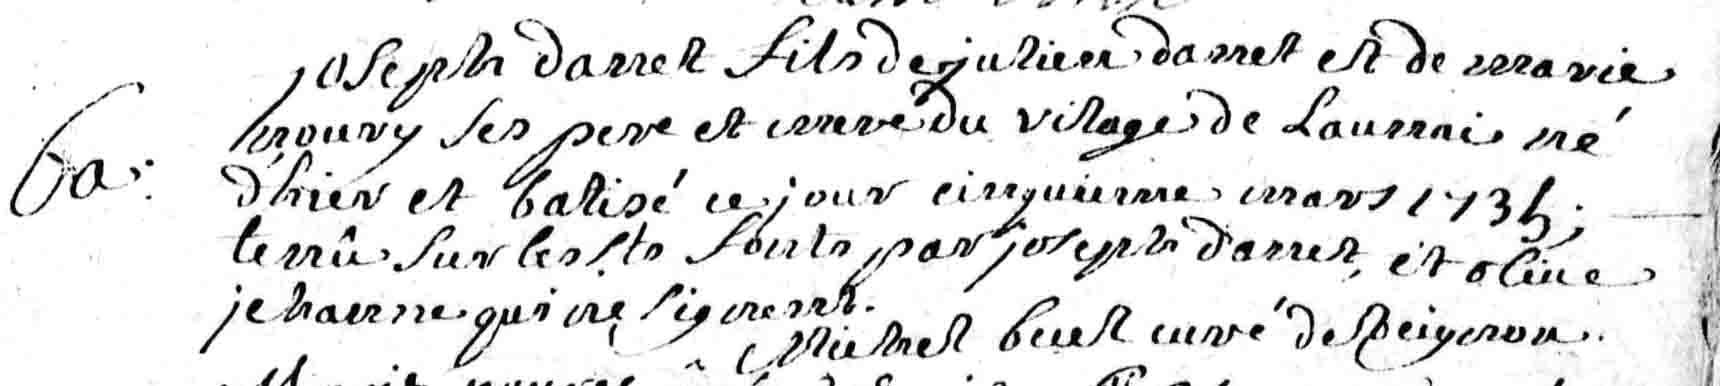 joseph dannet fils de julien dannet et de marie
mouvy ses pere et mere du vilage de Launai né
d'hier et batisé ce jour cinquieme mars 1735;
Ba:
tenû sur les sts fonts par joseph dannet, et olive
jehanne qui ne signent.
Michel buet curé de Peignon.